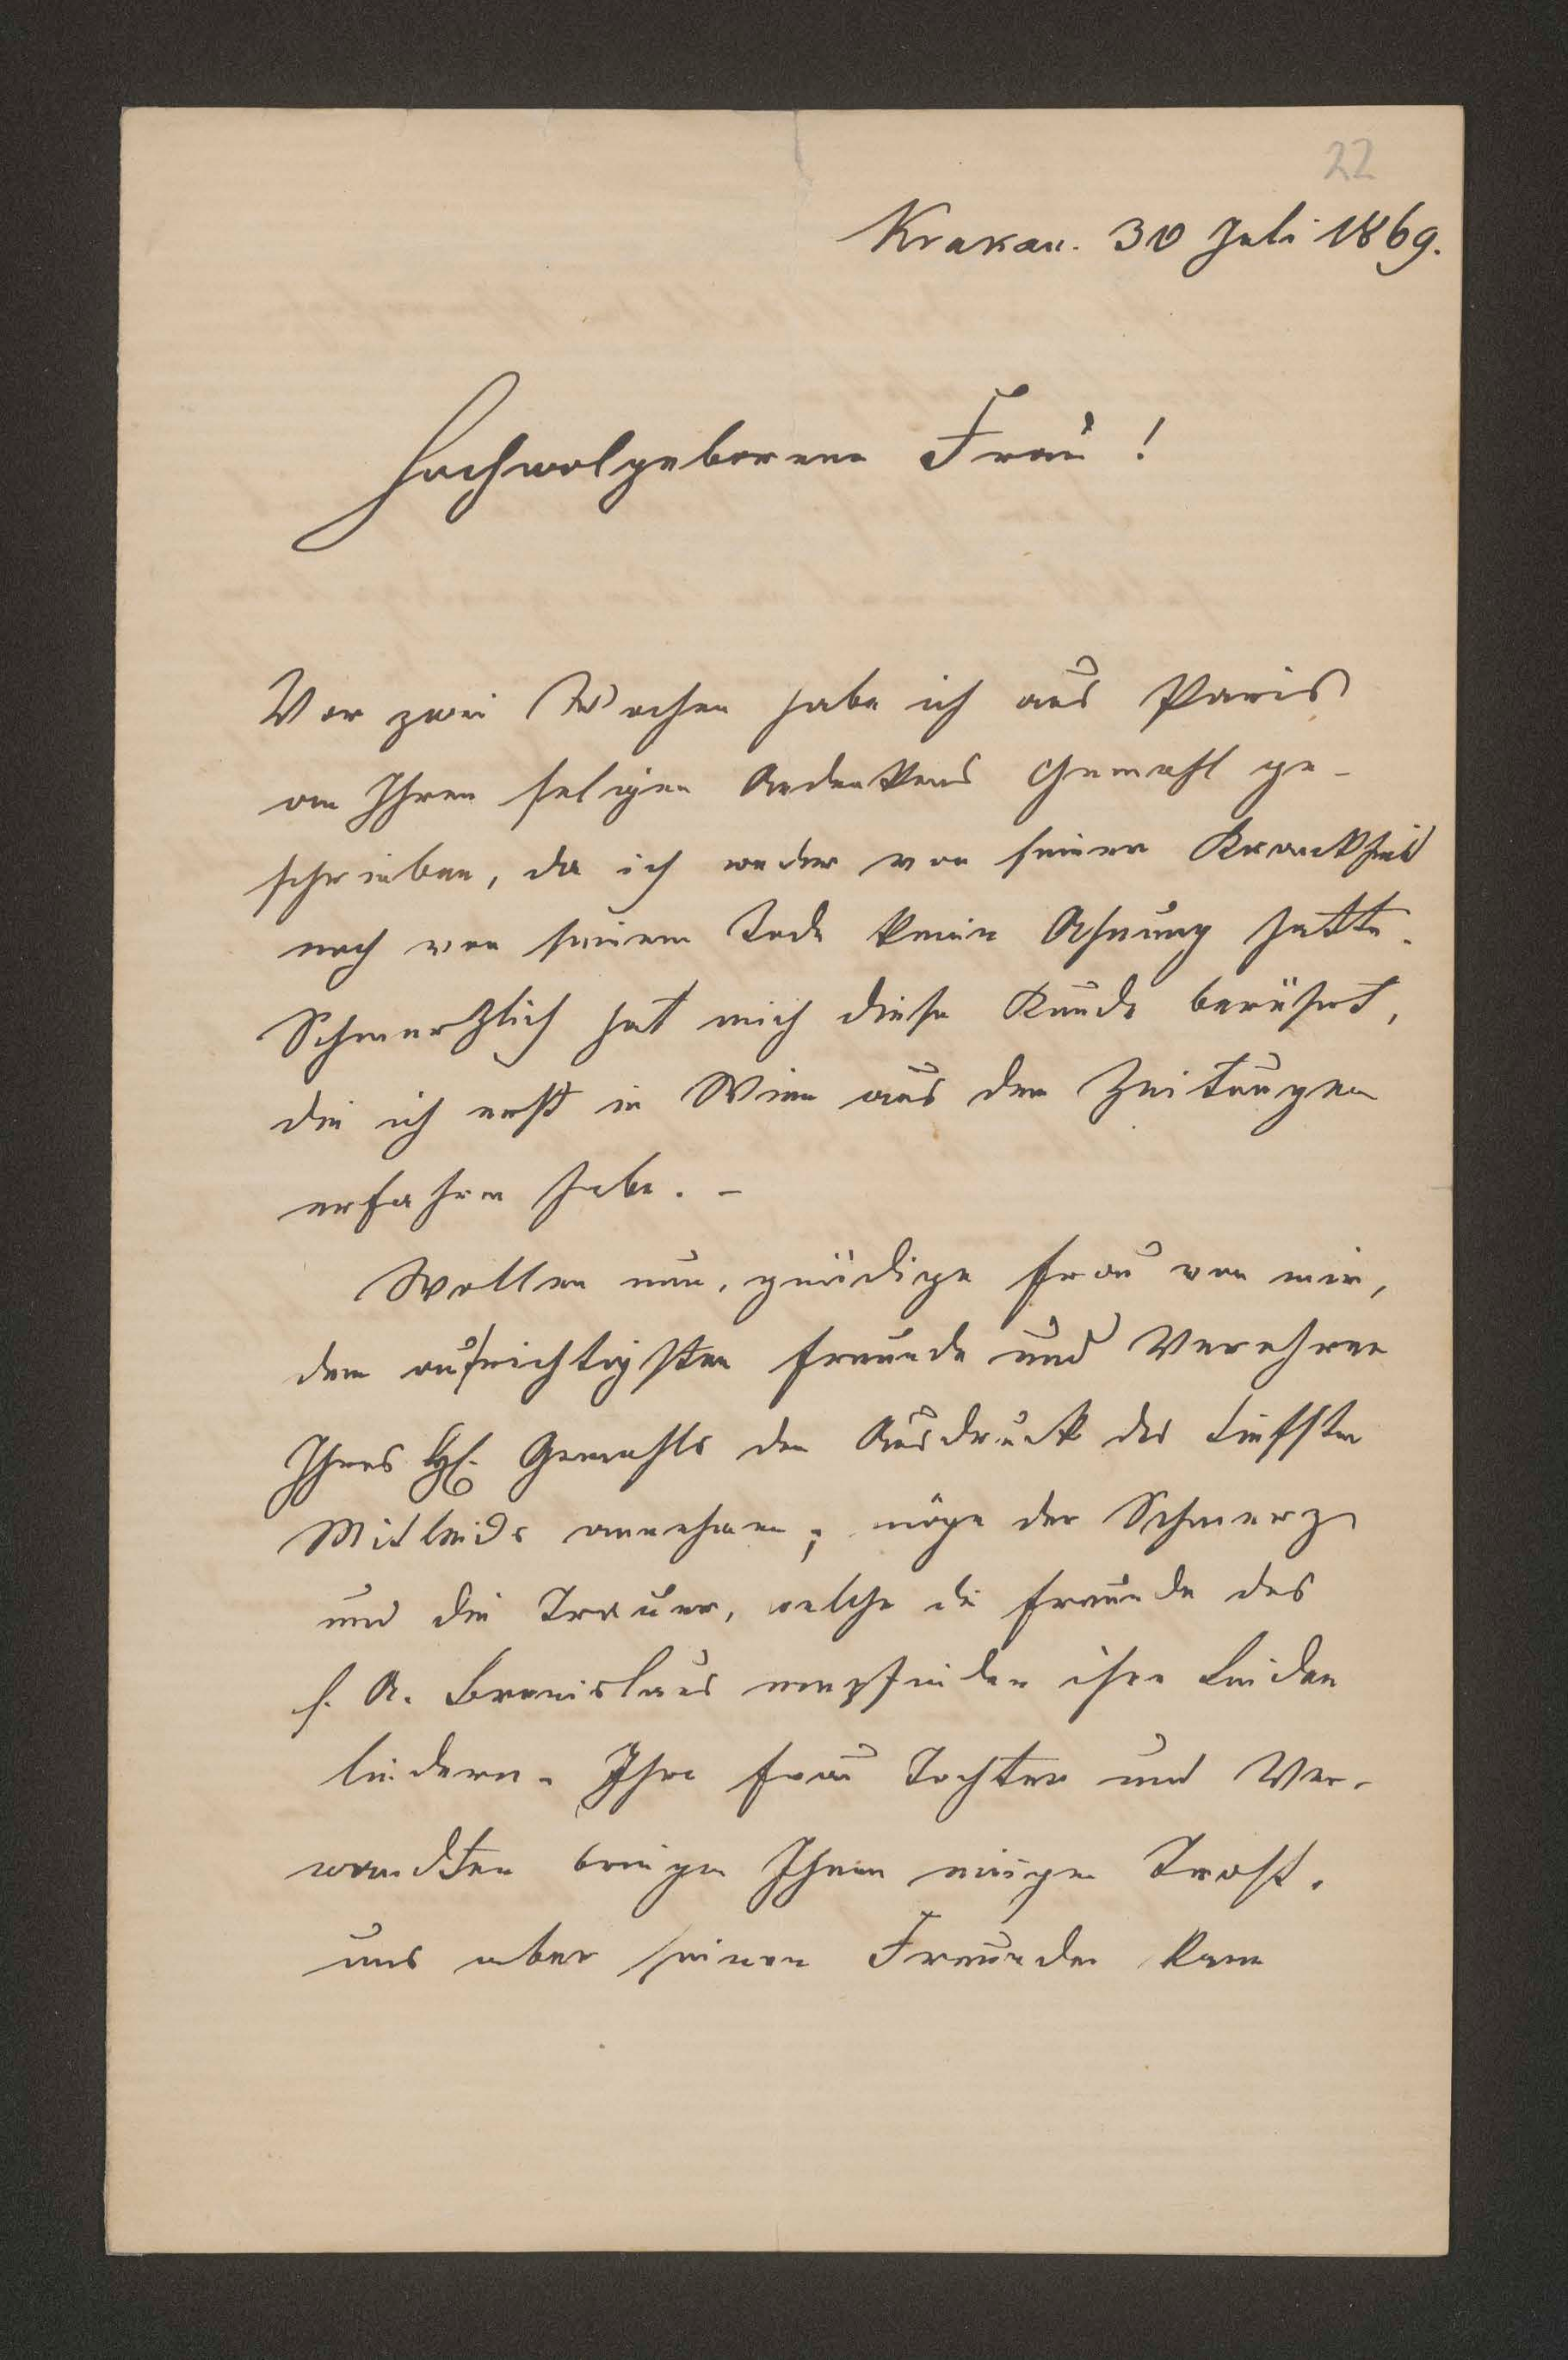 22
Krakau. 30 Juli 1869.
Hochwolgeborene Frau!
Vor zwei Wochen habe ich aus Paris
an Ihren seligen Andenkens Gemahl ge-
schrieben, da ich weder von seiner Krankheit
noch von seinem Tode keine Ahnung hatte.
Schmerzlich hat mich diese Kunde berührt,
die ich erst in Wien aus den Zeitungen
erfahren habe. -
Wollen nun, gnädige Frau von mir,
dem aufrichtigsten Freunde und Verehrer
Ihres Gemahls den Ausdruck des tiefsten
Mitleids annehmen; möge der Schmerz
und die Trauer, welche die Freunde des
s. A. Bronislaus empfinden ihre Leiden
lindern. Ihre Frau Tochter und Ver-
wandten bringen Ihnen einigen Trost,
uns aber seinen Freunden kann